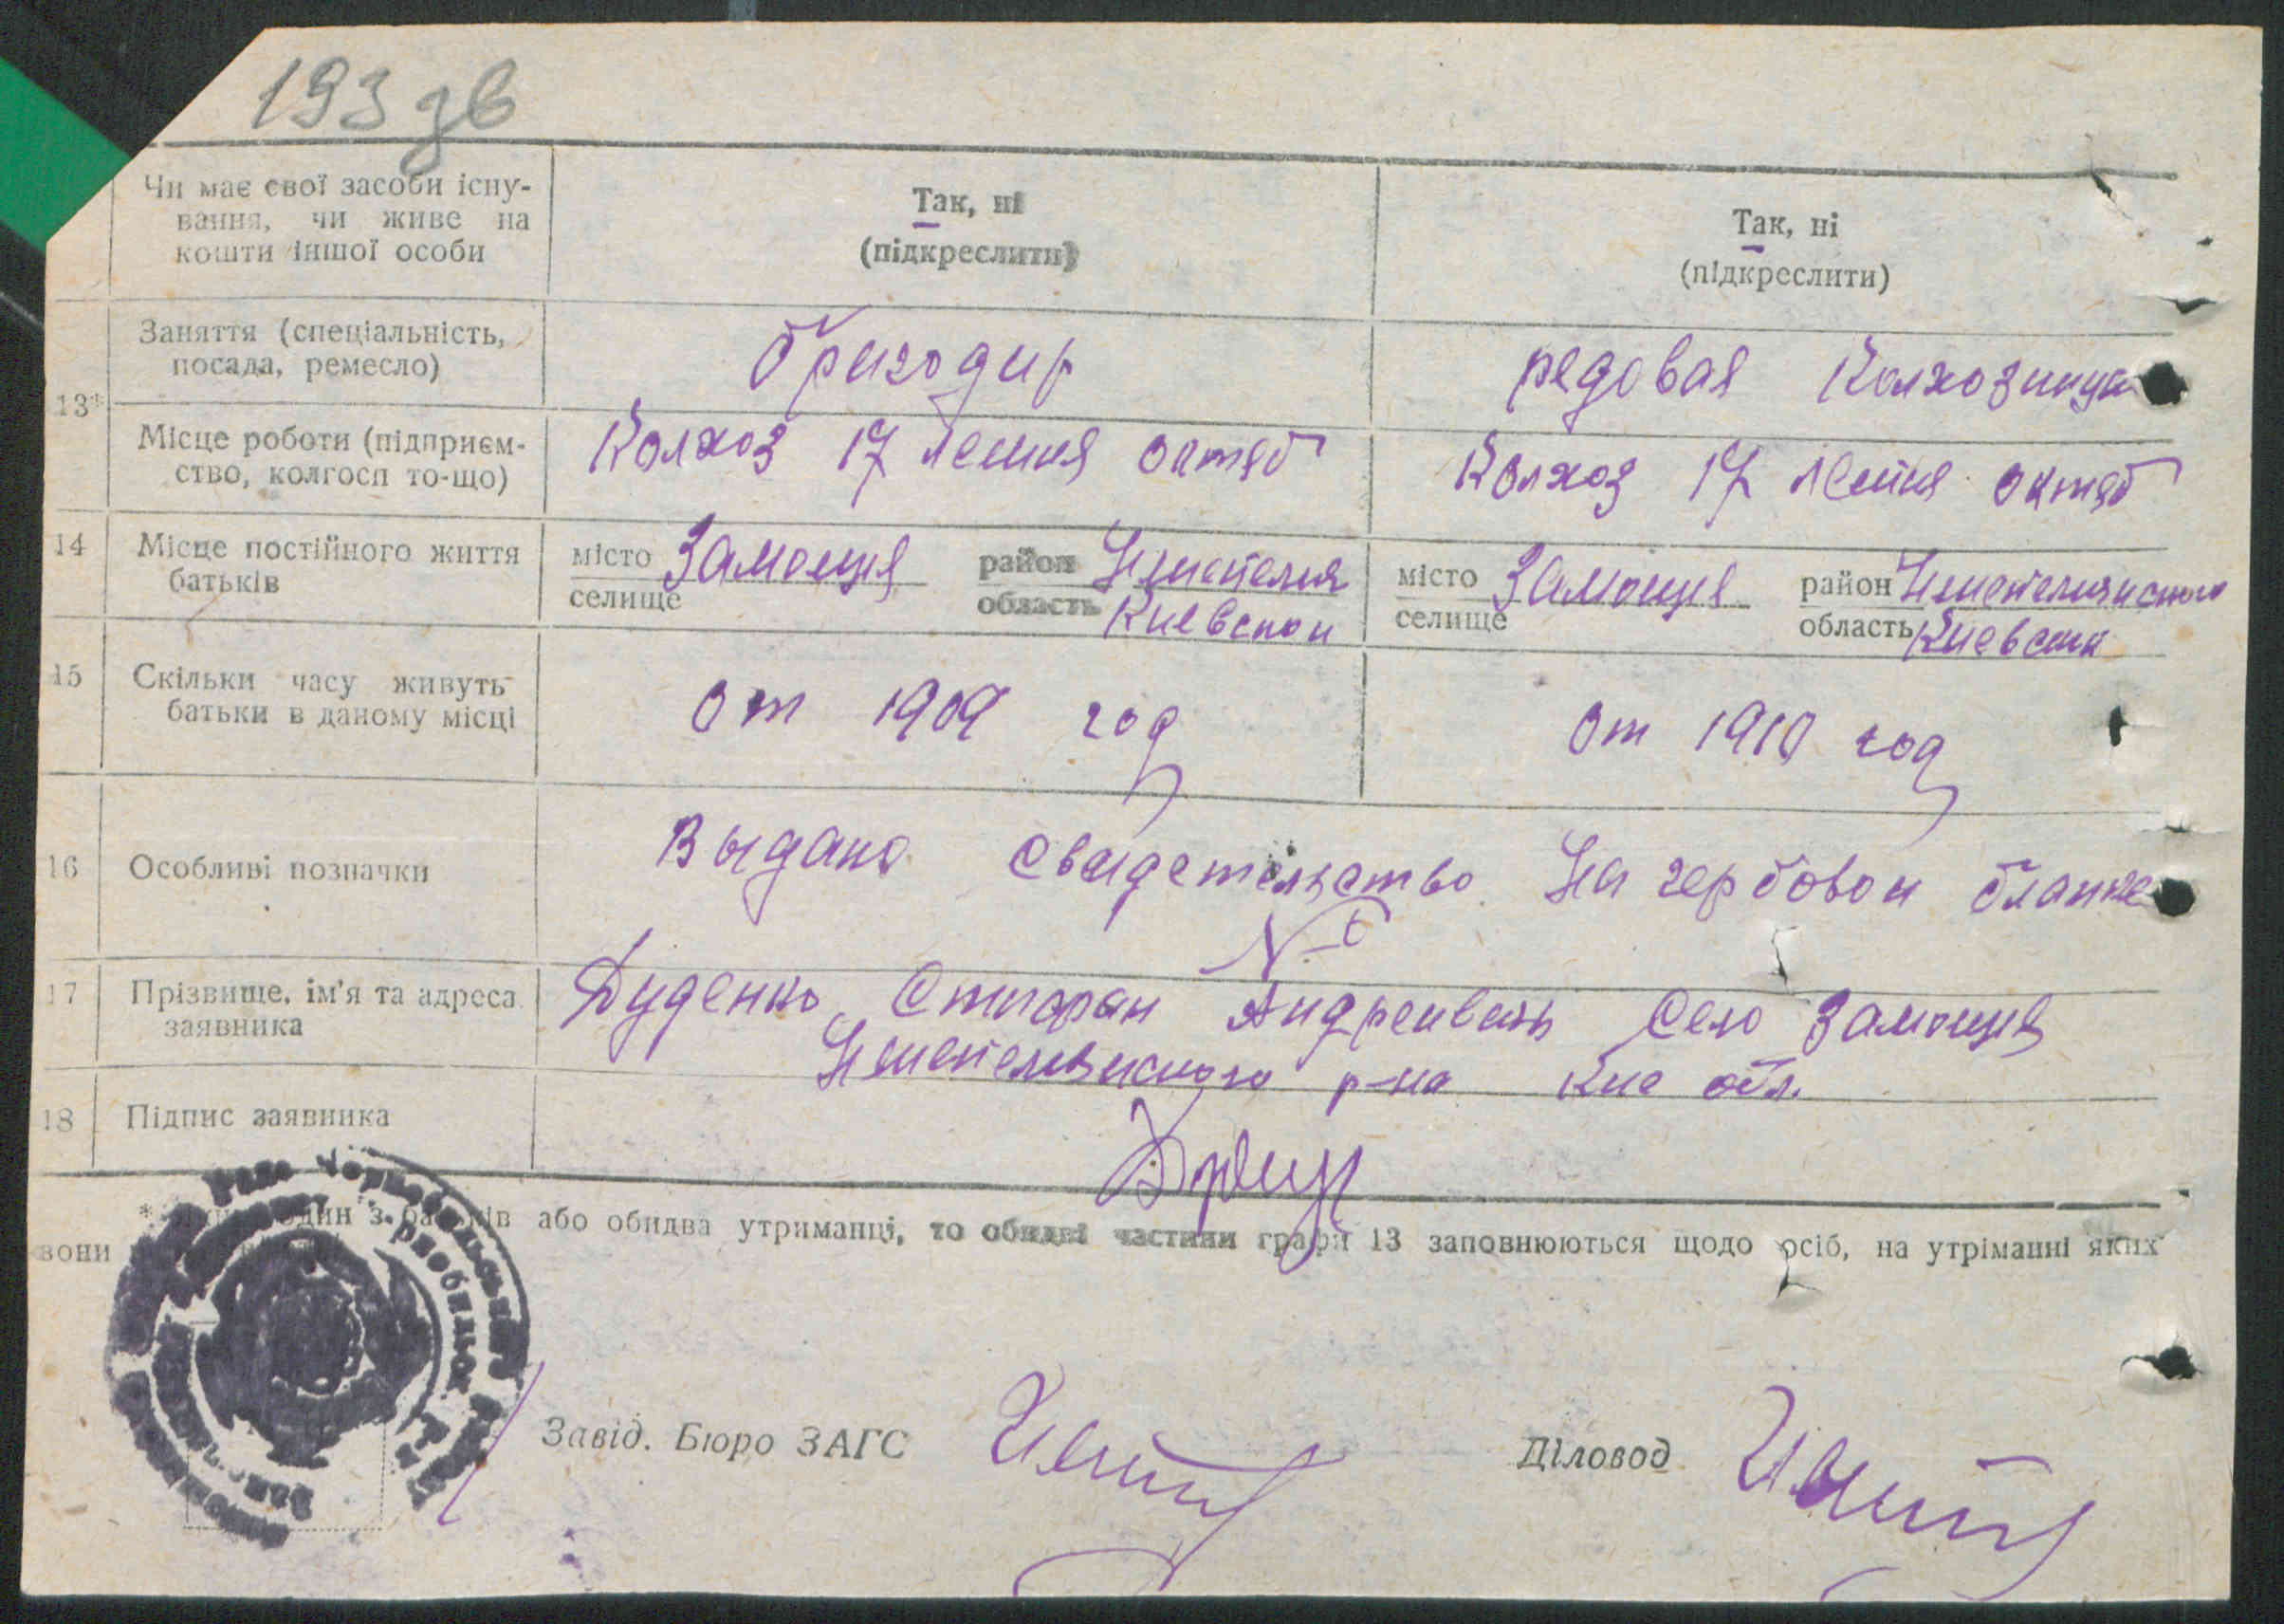 193 зв
Чи має свої засоби існу-
вання, чи живе на
кошти іншої особи
Так, ні
(підкреслити)
Так, ні
(підкреслити)
13*
Заняття (спеціальність,
посада, ремесло)
бригодир
редовая Колхозница
Місце роботи (підприєм-
ство, колгосп то-що)
Колхоз 17 летия октяб
Колхоз 17 летия октяб
14
Місце постійного життя
батьків
місто Замощня район
селище область Киевской
місто Замощня район
селище область
15
Скільки часу живуть
батьки в даному місці
От 1909 год
От 1910 год
16
Особливі позначки
Выдано Свидетельство На гербовой бланке
№
17
Прізвище, ім'я та адреса
заявника
Дуденко Андреивичь Село Замощня
р-на Кие обл.
18
Підпис заявника
* один з батьків або обидва утриманці, то обидві частини графи 13 заповнюються щодо осіб, на утріманні яких
вони
Завід. Бюро ЗАГС
Діловод